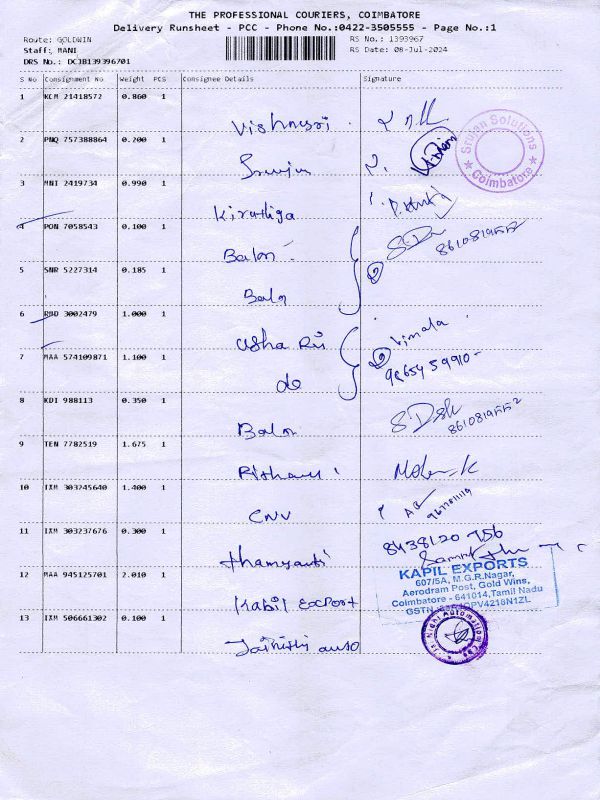 THE PROFESSIONAL COURIERS, COIMBATORE
Delivery Runsheet - PCC - Phone No.:0422-3505555 - Page No.:1
Route: GOLDWIN
RS No.: 1393967
Staff: MANI
RS Date: 08-Jul-2024
DRS No.: DCJB139396701
S No Consignment No Weight PCS Consignee Details Signature
1 KCM 21418572 0.860 1
Vishnusri
2 PNQ 757388864 0.200 1
Srujan Solutions
Coimbatore
3 MNI 2419734 0.990 1
Kiruthiga
4 PON 7058543 0.100 1
Balor 2
8610819552
5 SNR 5227314 0.185 1
Balor
6 RHD 3002479 1.000 1
Usha Rii 2 Vimala
7 MAA 574109871 1.100 1
do 9865459910
8 KDI 988113 0.350 1
Balor 8610819552
9 TEN 7782519 1.675 1
10 IXM 303245640 1.400 1
CNV
11 IXM 303237676 0.300 1
8438120 756
thamyanti
12 MAA 945125701 2.010 1
KAPIL EXPORTS
607/5A, M.G.R.Nagar,
Aerodram Post, Gold Wins,
Coimbatore - 641014,Tamil Nadu
Kabil Export
13 IXM 506661302 0.100 1
auto